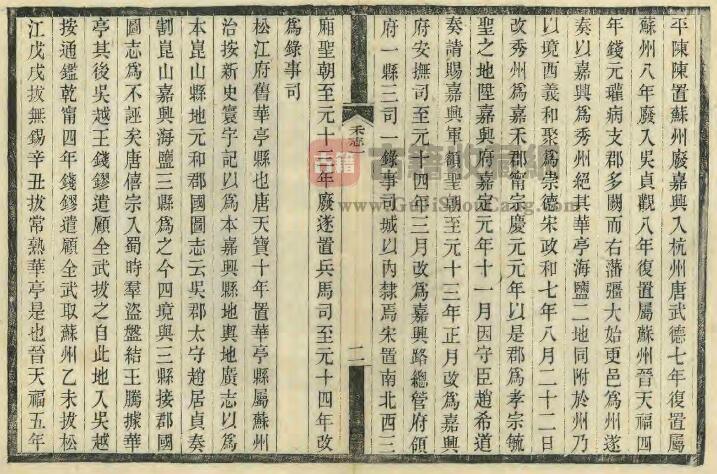 平陳陳置蘇州廢嘉興入杭州唐武德七年復置屬
蘇州八年廢入吳貞觀八年復置屬蘇州晉天福四
年錢元瓘病支郡多闕而右藩彊大始更邑為州遂
奏以嘉興為秀州絕其華亭海鹽二地同附於州乃
以境西義和聚為崇德宋政和七年八月二十二日
改秀州為嘉禾郡甯宗慶元元年以是郡為孝宗毓
聖之地陞嘉興府嘉定元年十一月因守臣趙希道
奏請賜嘉興軍額聖朝至元十三年正月改為嘉興
府安撫司至元十四年三月改為嘉興路總管府領
府一縣三司一錄事司城以內隸焉宋置南北西三
禾志
二
廂聖朝至元十三年廢遂置兵馬司至元十四年改
為錄事司
松江府舊華亭縣也唐天寶十年置華亭縣屬蘇州
治按新史寰宇記以為本嘉興縣地輿地廣志以為
本崑山縣地元和郡國圖志云吳郡太守趙居貞奏
割崑山嘉興海鹽三縣為之今四境與三縣接郡國
圖志為不誣矣唐僖宗入蜀時羣盜盤結王騰據華
亭其後吳越王錢鏐遣顧全武拔之自此地入吳越
按通鑑乾甯四年錢鏐遣顧全武取蘇州乙未拔松
江戊戌拔無錫辛丑拔常熟華亭是也晉天福五年
古籍
古籍收藏網
www.GuJiShouCang.com